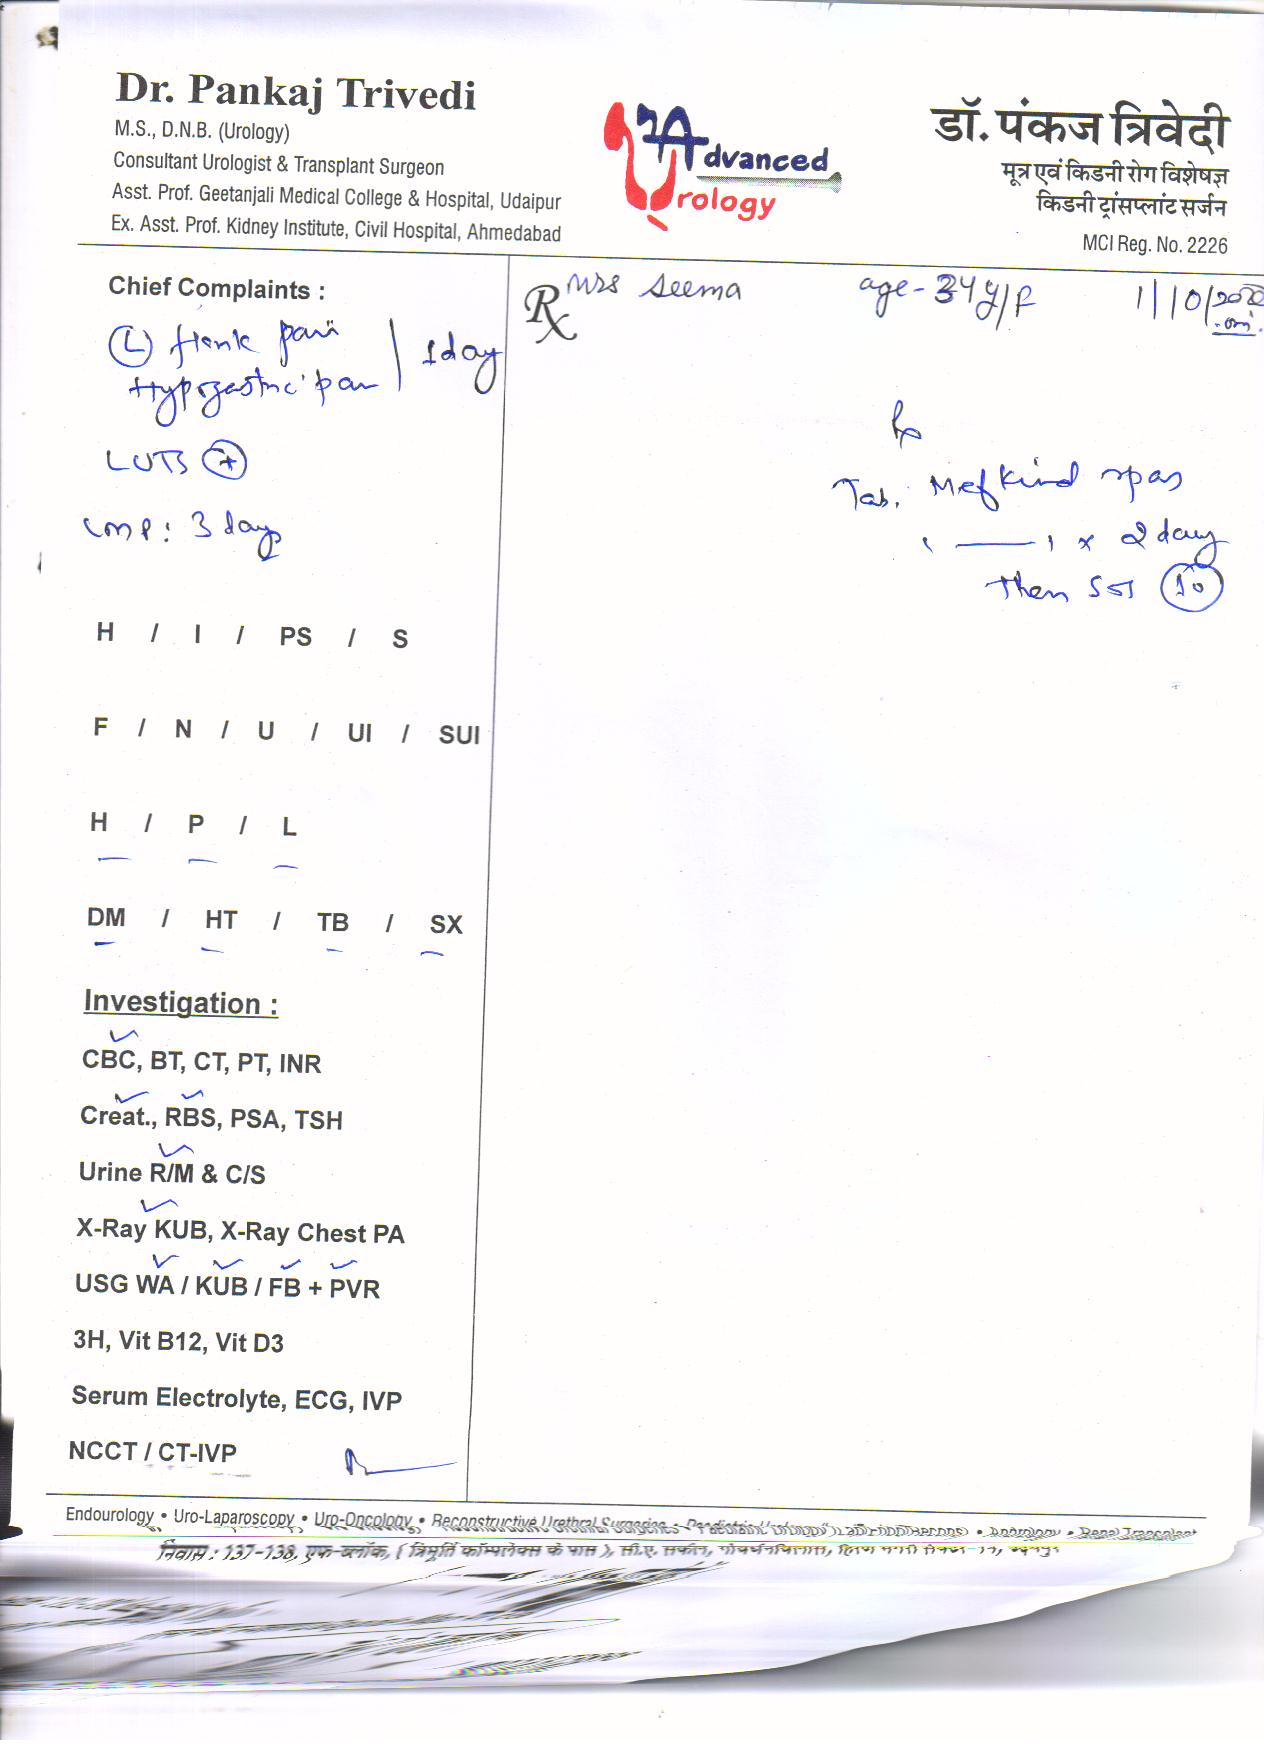 Dr. Pankaj Trivedi
M.S., D.N.B. (Urology)
Consultant Urologist & Transplant Surgeon
Asst. Prof. Geetanjali Medical College & Hospital, Udaipur
Ex. Asst. Prof. Kidney Institute, Civil Hospital, Ahmedabad
Advanced
Urology
डॉ. पंकज त्रिवेदी
मूत्र एवं किडनी रोग विशेषज्ञ
किडनी ट्रांसप्लांट सर्जन
MCI Reg. No. 2226
Chief Complaints :
(L) flank pain
Hypogastric pain | 1 day
LUTS (+)
LMP : 3 days
H / I / PS / S
F / N / U / UI / SUI
H / P / L
DM / HT / TB / SX
Investigation :
CBC, BT, CT, PT, INR
Creat., RBS, PSA, TSH
Urine R/M & C/S
X-Ray KUB, X-Ray Chest PA
USG WA / KUB / FB + PVR
3H, Vit B12, Vit D3
Serum Electrolyte, ECG, IVP
NCCT / CT-IVP
Rx Mrs Seema age - 34y/F 1/10/2020
Rx
Tab. Mefkind spas
1 — 1 x 2 day
Then SOS (10)
Endourology • Uro-Laparoscopy • Uro-Oncology • Reconstructive Urethral Surgeries •
निवास : 137-138, एफ-ब्लॉक, ( त्रिमूर्ति कॉम्पलेक्स के पास ),